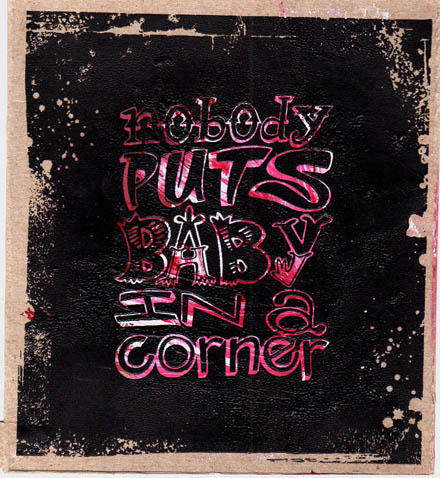 nobody
PUTS
BABY
IN a
corner